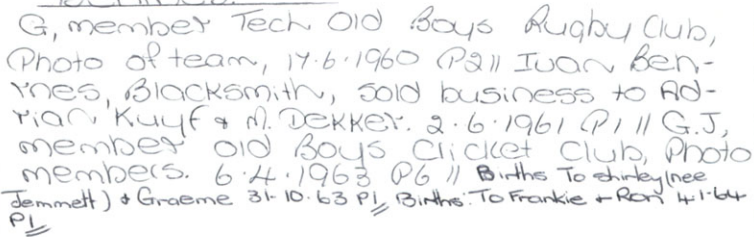 G, member Tech Old Boys Rugby Club,
Photo of team, 17.6.1960 P2 // Ivan Ben-
nes, Blacksmith, sold business to Ad-
rian Kuyf & M. Dekker. 2.6.1961 P1 // G.J,
member Old Boys Clicket Club, Photo
members. 6.4.1963 P6 // Births To Shirley (nee
Jemmett) & Graeme 31-10.63 P1 // Births: To Frankie + Ron 4-1-64
P1 //